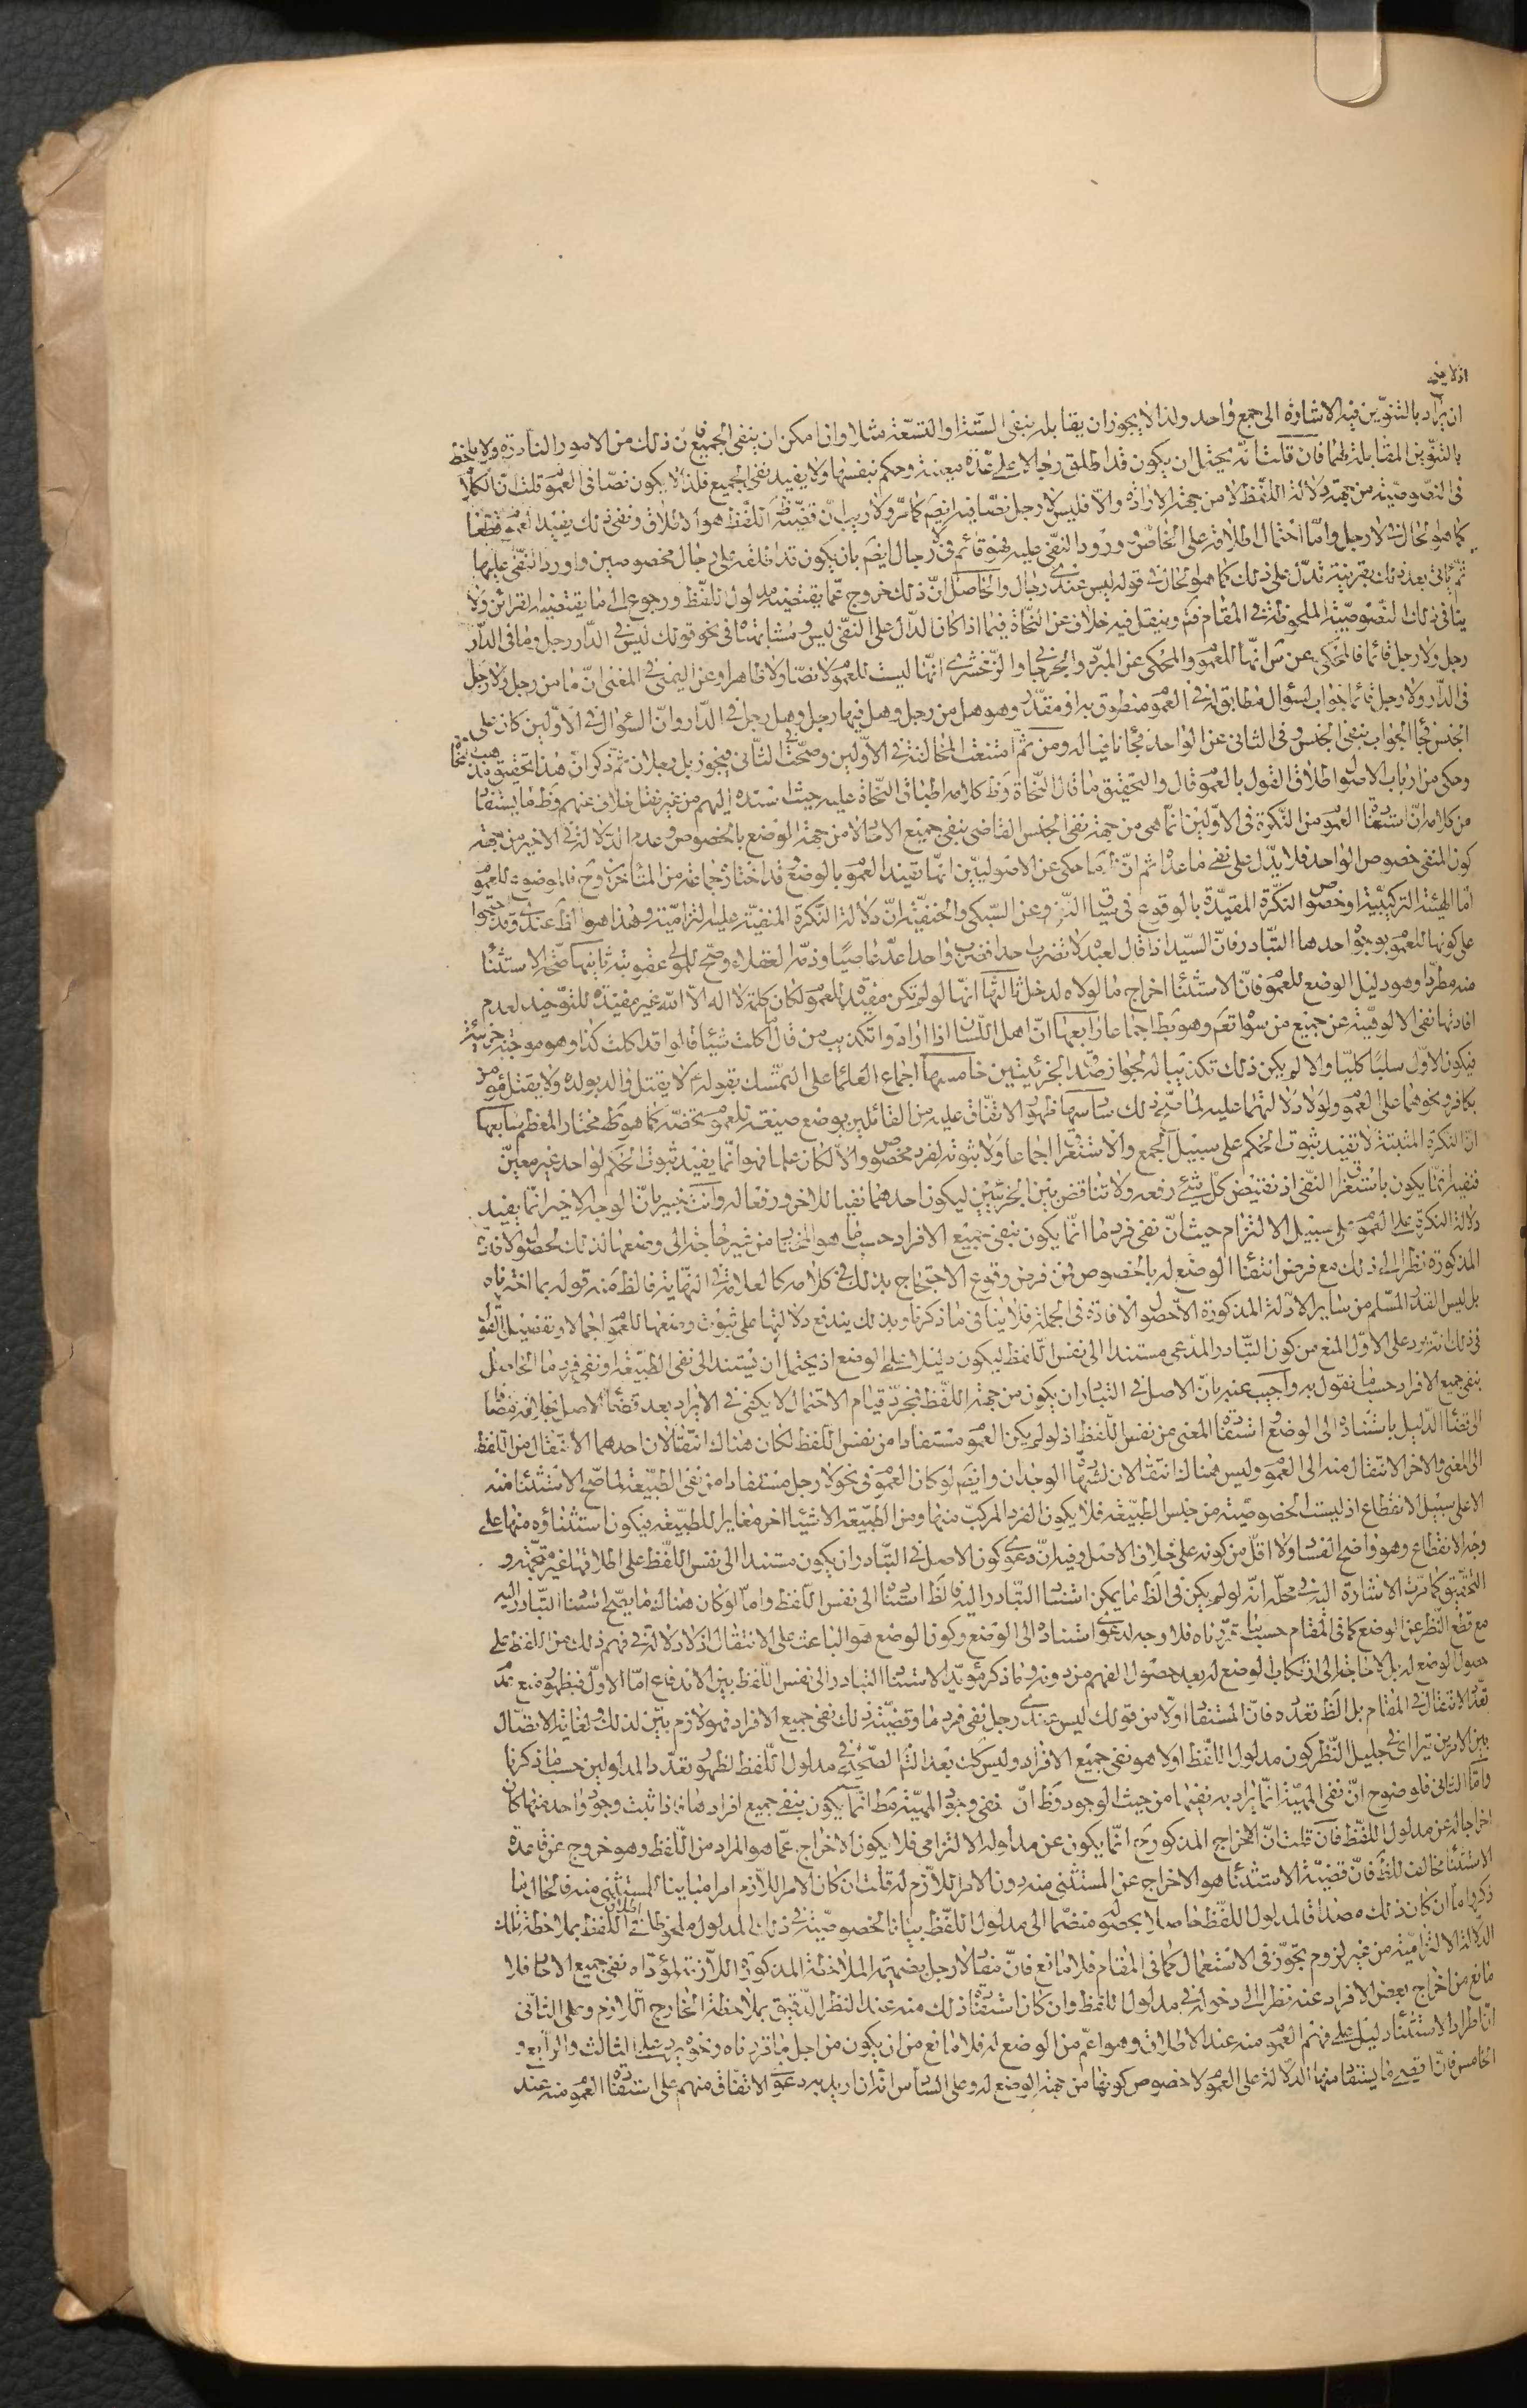 اذ لا يصح
ان يراد بالتنوين فيه الاشارة الى جمع واحد ولذا لا يجوز ان يقابله بنفى الستة والتسعة مثلا وان امكن ان ينفى الجميع فان ذلك من الامور النادرة ولا يلحظ
بالتنوين المقابلة لهما فان قلت انه يحتمل ان يكون قد اطلق رجالا على عدة معينة وحكم بنفيها ولا يفيد نفى الجميع فلذا لا يكون نصا فى العموم قلت ان الكلام
فى النصوصية من جهة دلالة اللفظ لا من جهة الارادة والا فليس لا رجل نصا فيه ايضم كما مر ولا ريب ان قضية اللفظ هو الاطلاق ونفى ذلك يفيد العموم قطعا
كما هو الحال فى لا رجل واما احتمال اطلاقه على الخاص وورود النفى عليه فهو قائم فى لا رجال ايضم بان يكون قد اطلقه على رجال مخصوصين واورد النفى عليها
ثم ياتى بعد ذلك بقرينة تدل على ذلك كما هو الحال فى قوله ليس عندى رجال والحاصل ان ذلك خروج عما يقتضيه مدلول اللفظ ورجوع الى ما يقتضيه القرائن ولا
ينافى ذلك النصوصية الملحوظة فى المقام فتم وينقل فيه خلاف عن النحاة فيما اذا كان الدال على النفى ليس وما شابهتها فى نحو قولك ليس فى الدار رجل وما فى الدار
رجل ولا رجل قائما فالمحكى عن س انها للعموم والمحكى عن المبرد والجرجانى والزمخشرى انها ليست للعموم لا نصا ولا ظاهرا وعن اليمنى فى المغنى ان ما من رجل ولا رجل
فى الدار ولا رجل قائما جواب لسؤال مطابق له فى العموم منطوق به او مقدر وهو هل من رجل وهل فيها رجل وهل رجل فى الدار وان السؤال فى الاولين كان على
الجنس فجاء الجواب بنفى الجنس وفى الثانى عن الواحد فجاء نافيا له ومن ثم امتنعت المخالفة فى الاولين وصحت فى الثانى فيجوز بل رجلان ثم ذكر ان هذا تحقيق مذهب النحاة
وحكى من ارباب الاصول اطلاق القول بالعموم قال والتحقيق ما قال النحاة وظ كلامه اطباق النحاة عليه حيث اسنده اليهم من غير نقل خلاف عنهم وظ ما يستفاد
من كلامه ان استفادة العموم من النكرة فى الاولين انما هى من جهة نفى الجنس القاضى بنفى جميع الاحاد لا من جهة الوضع بالخصوص وعدم الدلالة فى الاخير من جهة
كون المنفى خصوص الواحد فلا يدل على نفى ما عداه ثم ان ظ ما حكى عن الاصوليين انها تفيد العموم بالوضع وقد اختاره جماعة من المتأخرين وح فالموضوع للعموم
اما الهيئة التركيبية او خصوص النكرة المقيدة بالوقوع فى سياق النفى وعن السبكى والحنفية ان دلالة النكرة المنفية عليه التزامية وهذا هو الظ عندى وقد احتجوا
على كونها للعموم بوجوه احدها التبادر فان السيد اذا قال لعبده لا تضرب احدا فضرب واحدا عد عاصيا وذمه العقلاء وصح للمولى عقوبته ثانيها صحة الاستثناء
منه مطردا وهو دليل الوضع للعموم فان الاستثناء اخراج ما لولاه لدخل ثالثها انها لو لم تكن مفيدة للعموم لكان كلمة لا اله الا الله غير مفيدة للتوحيد لعدم
افادتها نفى الالوهية عن جميع من سواه تعم وهو بط اجماعا رابعها ان اهل اللسان اذا ارادوا تكذيب من قال ما اكلت شيئا قالوا قد اكلت كذا وهو موجبة جزئية
فيكون الاول سلبا كليا والا لم يكن ذلك تكذيبا له لجواز صدق الجزئيتين خامسها اجماع العلماء على التمسك بقوله لا يقتل والد بولده ولا يقتل مؤمن
بكافر ونحوهما على العموم ولولا دلالتهما عليه لما صح ذلك سادسها ظهور الاتفاق عليه من القائلين بوضع صيغة للعموم تخصه كما هو ظ مختار المعظم سابعها
ان النكرة المثبتة لا تفيد ثبوت الحكم على سبيل الجمع والاستغراق اجماعا ولا ثبوته لفرد مخصوص والا لكان علما فهو انما يفيد ثبوت الحكم لواحد غير معين
فنفيه انما يكون باستغراق النفى اذ نقيض كل شىء رفعه ولا تناقض بين الجزئيين ليكون احدهما نفيا للاخر ورفعا له وانت خبير بان الوجه الاخير انما يفيد
دلالة النكرة على العموم على سبيل الالتزام حيث ان نفى فرد ما انما يكون بنفى جميع الافراد حسبما هو المختار من غير حاجة الى وضعها لذلك لحصول الافادة
المذكورة نظرا الى ذلك مع فرض انتفاء الوضع له بالخصوص فمن فرض وقوع الاحتجاج بذلك فى كلامه كالعلامة فى النهاية فالظ منه قوله بما اخترناه
بل ليس القدر المسلم من ساير الادلة المذكورة الا حصول الافادة فى الجملة فلا ينافى ما ذكرنا وبذلك يندفع دلالتها على ثبوت وضعها للعموم اجمالا وتفصيل القول
فى ذلك انه يرد على الاول المنع من كون التبادر المدعى مستندا الى نفس اللفظ ليكون دليلا على الوضع اذ يحتمل ان يستند الى نفى الطبيعة او نفى فرد ما الحاصل
بنفى جميع الافراد حسبما نقول به واجيب عنه بان الاصل فى التبادر ان يكون من جهة اللفظ فمجرد قيام الاحتمال لا يكفى فى الايراد بعد قضاء الاصل بخلافه مضافا
الى قضاء الدليل باستناده الى الوضع واستفادة المعنى من نفس اللفظ اذ لو لم يكن العموم مستفادا من نفس اللفظ لكان هناك انتقالان احدهما الانتقال من اللفظ
الى المعنى والاخر الانتقال منه الى العموم وليس هناك انتقالان لشهادة الوجدان وايضم لو كان العموم فى نحو لا رجل مستفادا من نفى الطبيعة لما صح الاستثناء منه
الا على سبيل الانقطاع اذ ليست الخصوصية من جنس الطبيعة فلا يكون الفرد المركب منها ومن الطبيعة الا شيئا اخر مغايرا للطبيعة فيكون استثناؤه منها على
وجه الانقطاع وهو واضح الفساد ولا اقل من كونه على خلاف الاصل وفيه ان دعوى كون الاصل فى التبادر ان يكون مستندا الى نفس اللفظ على اطلاقها غير متجهة و
التحقيق كما مرت الاشارة اليه فى محله انه لو لم يكن فى الظ ما يمكن استناد التبادر اليه فالظ استناده الى نفس اللفظ واما لو كان هناك ما يصح استناد التبادر اليه
مع قطع النظر عن الوضع كما فى المقام حسبما قررناه فلا وجه لدعوى استناده الى الوضع وكون الوضع هو الباعث على الانتقال اذ لا دلالة فى فهم ذلك من اللفظ على
حصول الوضع له بل لا حاجة الى ارتكاب الوضع له بعد حصول الفهم من دونه وما ذكر مؤيدا لاستناد التبادر الى نفس اللفظ بين الاندفاع اما الاول فبظهور منع عدم
تعدد الانتقال فى المقام بل الظ تعدده فان المستفاد اولا من قولك ليس عندى رجل نفى فرد ما وقضية ذلك نفى جميع الافراد فهو لازم بين لذلك ولغاية الاتصال
بين الامرين يتراءى فى جليل النظر كون مدلول اللفظ اولا هو نفى جميع الافراد وليس كك بعد التامل الصحيح فى مدلول اللفظ لظهور تعدد المدلولين حسبما ذكرنا
واما الثانى فلوضوح ان نفى المهية انما يراد به نفيها من حيث الوجود وظ ان نفى وجود المهية مط انما يكون بنفى جميع افرادها فاذا ثبت وجود واحد منها كان
اخراجا له عن مدلول اللفظ فان قلت ان الاخراج المذكور ح انما يكون عن مدلوله الالتزامى فلا يكون الاخراج عما هو المراد من اللفظ وهو خروج عن قاعدة
الاستثناء مخالف للظ فان قضية الاستثناء هو الاخراج عن المستثنى منه دون الامر اللازم له قلت ان كان الامر اللازم امرا مباينا للمستثنى منه فالحال ما
ذكر واما ان كان ذلك مصداقا لمدلول اللفظ حاصلا بحصوله منضما الى مدلول اللفظ بيانا لخصوصية فى ذلك المدلول ملحوظا فى اطلاق اللفظ بملاحظة تلك
الدلالة الالتزامية من غير لزوم تجوز فى الاستعمال كما فى المقام فلا مانع فان مفاد لا رجل بضميمة الملاحظة المذكورة اللازمة لمؤداه نفى جميع الاحاد فلا
مانع من اخراج بعض الافراد عنه نظرا الى دخوله فى مدلول اللفظ وان كان استفادة ذلك منه عند النظر الدقيق بملاحظة الخارج اللازم وعلى الثانى
ان اطراد الاستثناء دليل على فهم العموم منه عند الاطلاق وهو اعم من الوضع له فلا مانع من ان يكون من اجل ما قررناه ونحوه يرد على الثالث والرابع و
الخامس فان اقصى ما يستفاد منها الدلالة على العموم لا خصوص كونها من جهة الوضع له وعلى السادس انه ان اريد به دعوى الاتفاق منهم على استفادة العموم منه عند